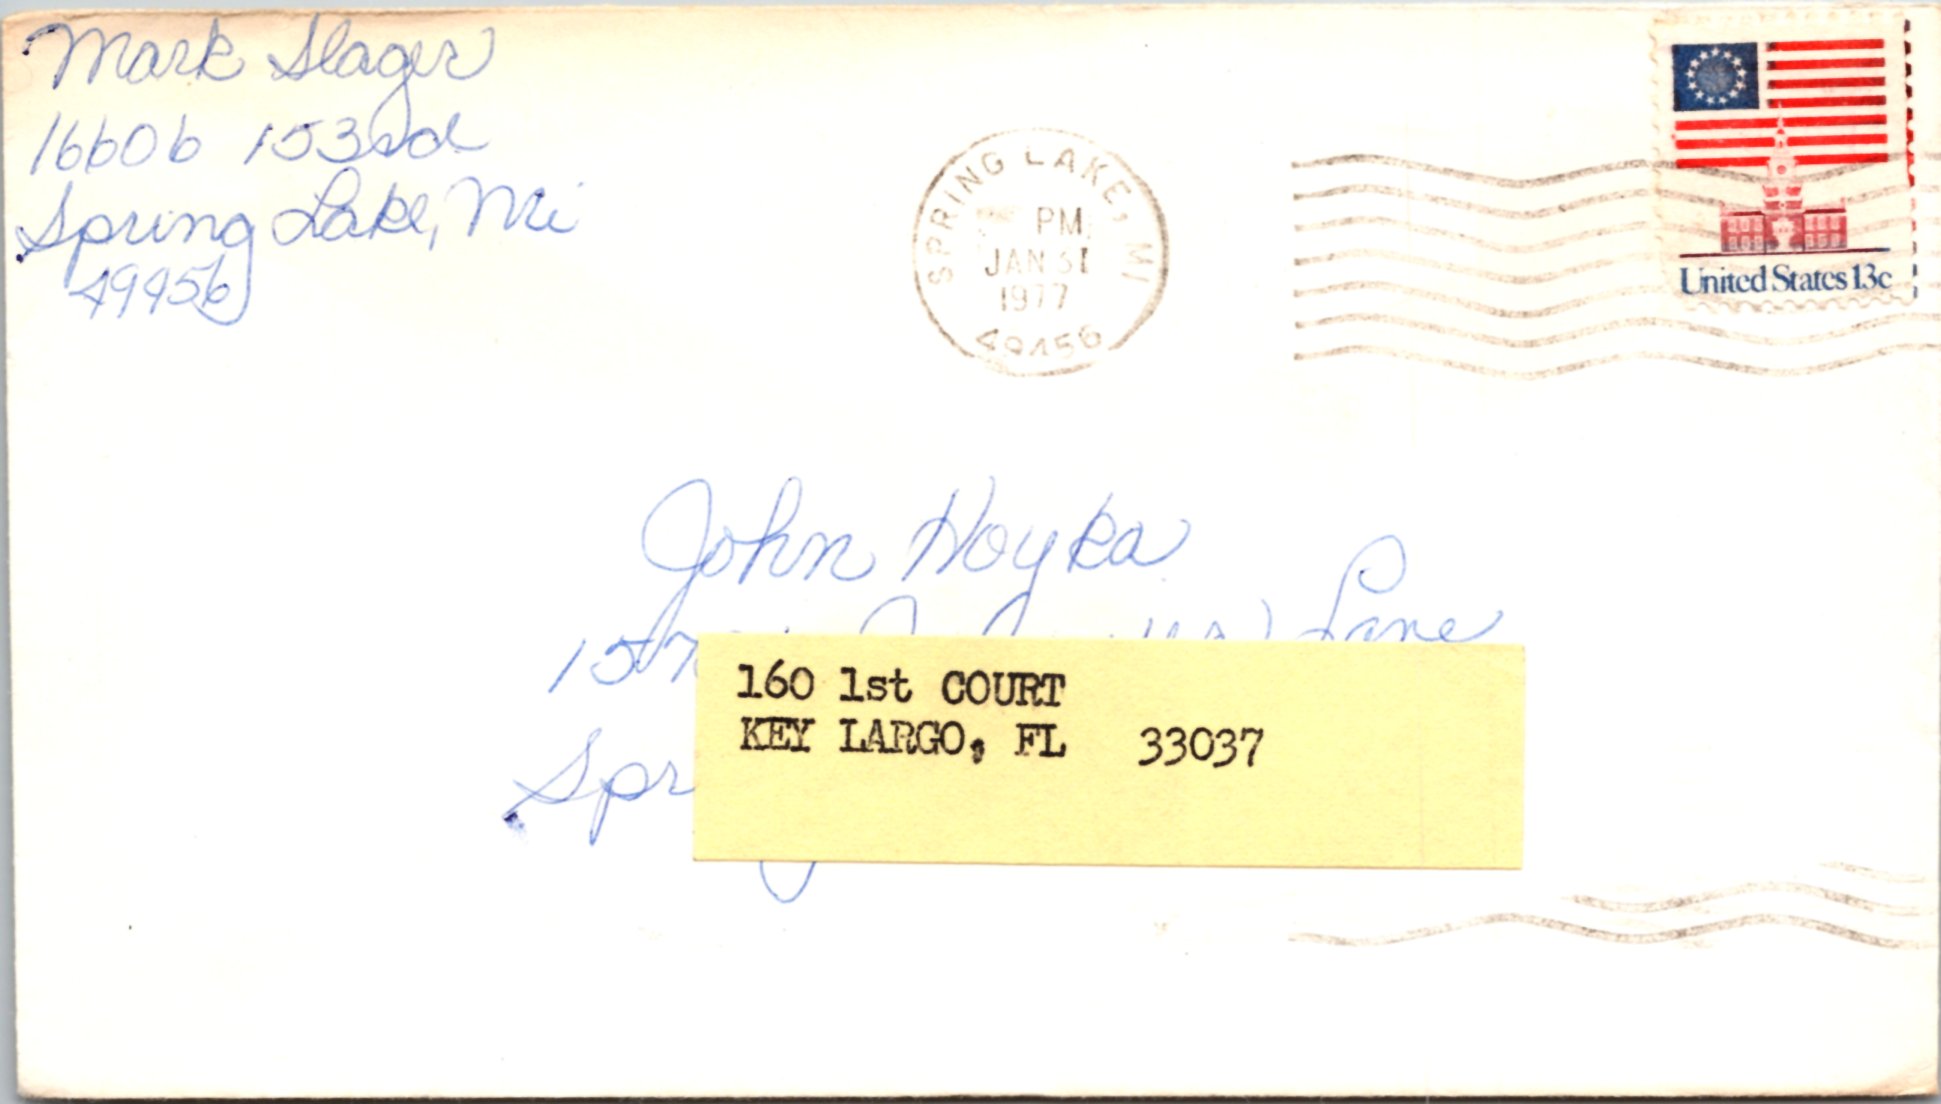 Mark Slager
16606 153rd
Spring Lake, Mi
49456
SPRING LAKE, MI
PM
JAN 31
1977
49456
United States 13c
John Hoyka
Lane
160 1st COURT
KEY LARGO, FL 33037